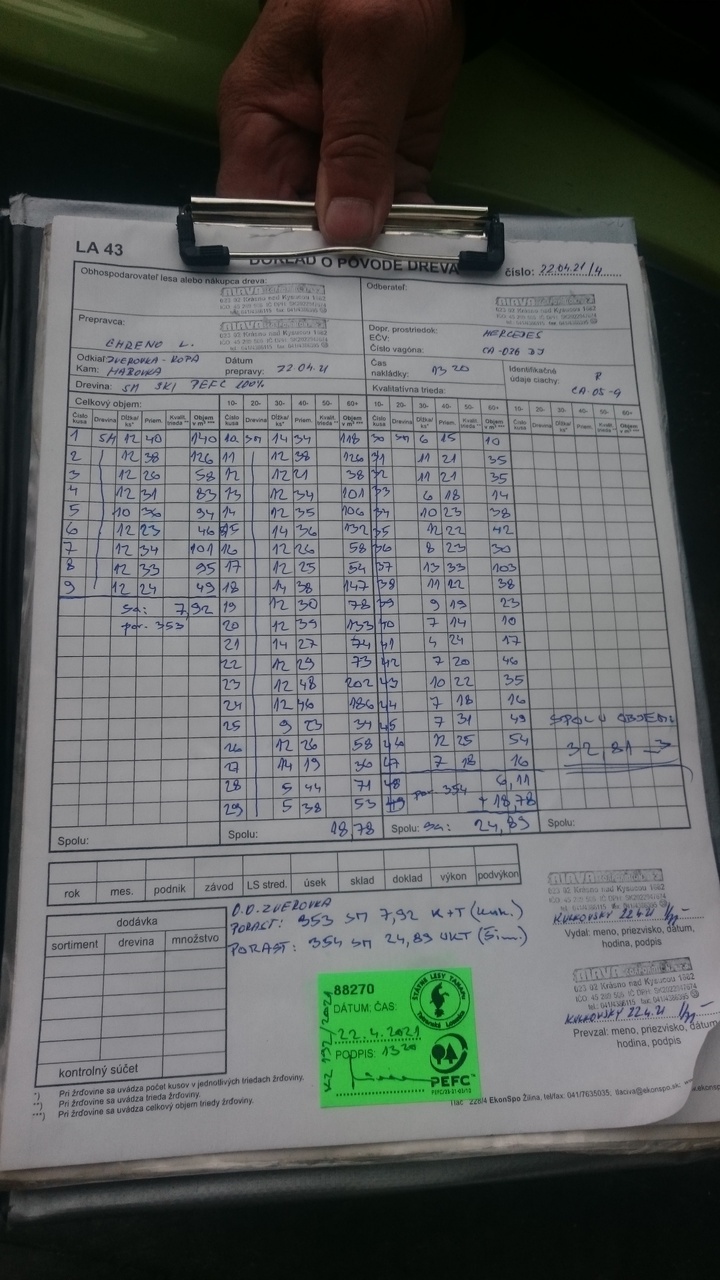 LA 43
DOKLAD O PÔVODE DREVA
číslo: 22.04.21/4
Obhospodarovateľ lesa alebo nákupca dreva:
623 02 Krásno nad Kysucou 1662
Odberateľ:
623 02 Krásno nad Kysucou 1662
Prepravca:
CHRENO L.
Dopr. prostriedok: MERCEDES
EČV:
Číslo vagóna: CA-026 DJ
Odkiaľ: ZVEROVKA - ROPA
Kam: HABOVKA
Dátum prepravy: 22.04.21
Čas nakládky: 13 20
Identifikačné údaje ciachy: R CA-05-9
Drevina: SM SKI PEFC 100%
Kvalitatívna trieda:
Celkový objem: 10- 20- 30- 40- 50- 60+ 10- 20- 30- 40- 50- 60+ 10- 20- 30- 40- 50- 60+
Číslo kusa Drevina Dĺžka/ks* Priem. Kvalit. trieda ** Objem v m³ ***
1 SM 12 40 140 10 SM 14 34 118 30 SM 6 15 10
2 12 38 126 11 12 38 126 31 11 21 35
3 12 26 58 12 12 21 38 32 11 21 35
4 12 31 83 13 12 34 101 33 6 18 14
5 10 36 94 14 12 35 106 34 10 23 38
6 12 23 46 15 14 36 132 35 12 22 42
7 12 34 101 16 12 26 58 36 8 23 30
8 12 33 95 17 12 25 54 37 13 33 103
9 12 24 49 18 14 38 147 38 11 22 38
sa: 7,92 19 12 30 78 39 9 19 23
por. 353 20 12 39 133 40 7 14 10
21 14 27 74 41 4 24 17
22 12 29 73 42 7 20 46
23 12 48 202 43 10 22 35
24 12 46 186 44 7 18 16
25 9 23 34 45 7 31 49 SPOLU OBJEM
26 12 26 58 46 12 25 54 32,81
27 14 19 30 47 7 18 16
28 5 44 71 48 por. 354 6,11
29 5 38 53 49 + 18,78
Spolu: Spolu: 18,78 Spolu: sa: 24,89 Spolu:
rok mes. podnik závod LS stred. úsek sklad doklad výkon podvýkon
dodávka
sortiment drevina množstvo
kontrolný súčet
O.O. ZVEROVKA
PORAST: 353 SM 7,92 K+T (Kmh.)
PORAST: 354 SM 24,89 UKT (Šim.)
623 02 Krásno nad Kysucou 1662
22.4.21
Vydal: meno, priezvisko, dátum, hodina, podpis
623 02 Krásno nad Kysucou 1662
22.4.21
Prevzal: meno, priezvisko, dátum, hodina, podpis
88270
ŠTÁTNE LESY TANAPu
Tatranská Lomnica
DÁTUM, ČAS:
22.4.2021
PODPIS: 13 20
KZ 192/2021
PEFC
*) Pri žrďovine sa uvádza počet kusov v jednotlivých triedach žrďoviny.
**) Pri žrďovine sa uvádza trieda žrďoviny.
***) Pri žrďovine sa uvádza celkový objem triedy žrďoviny.
Tlač 228/4 EkonSpo Žilina, tel/fax: 041/7635035, tlaciva@ekonspo.sk